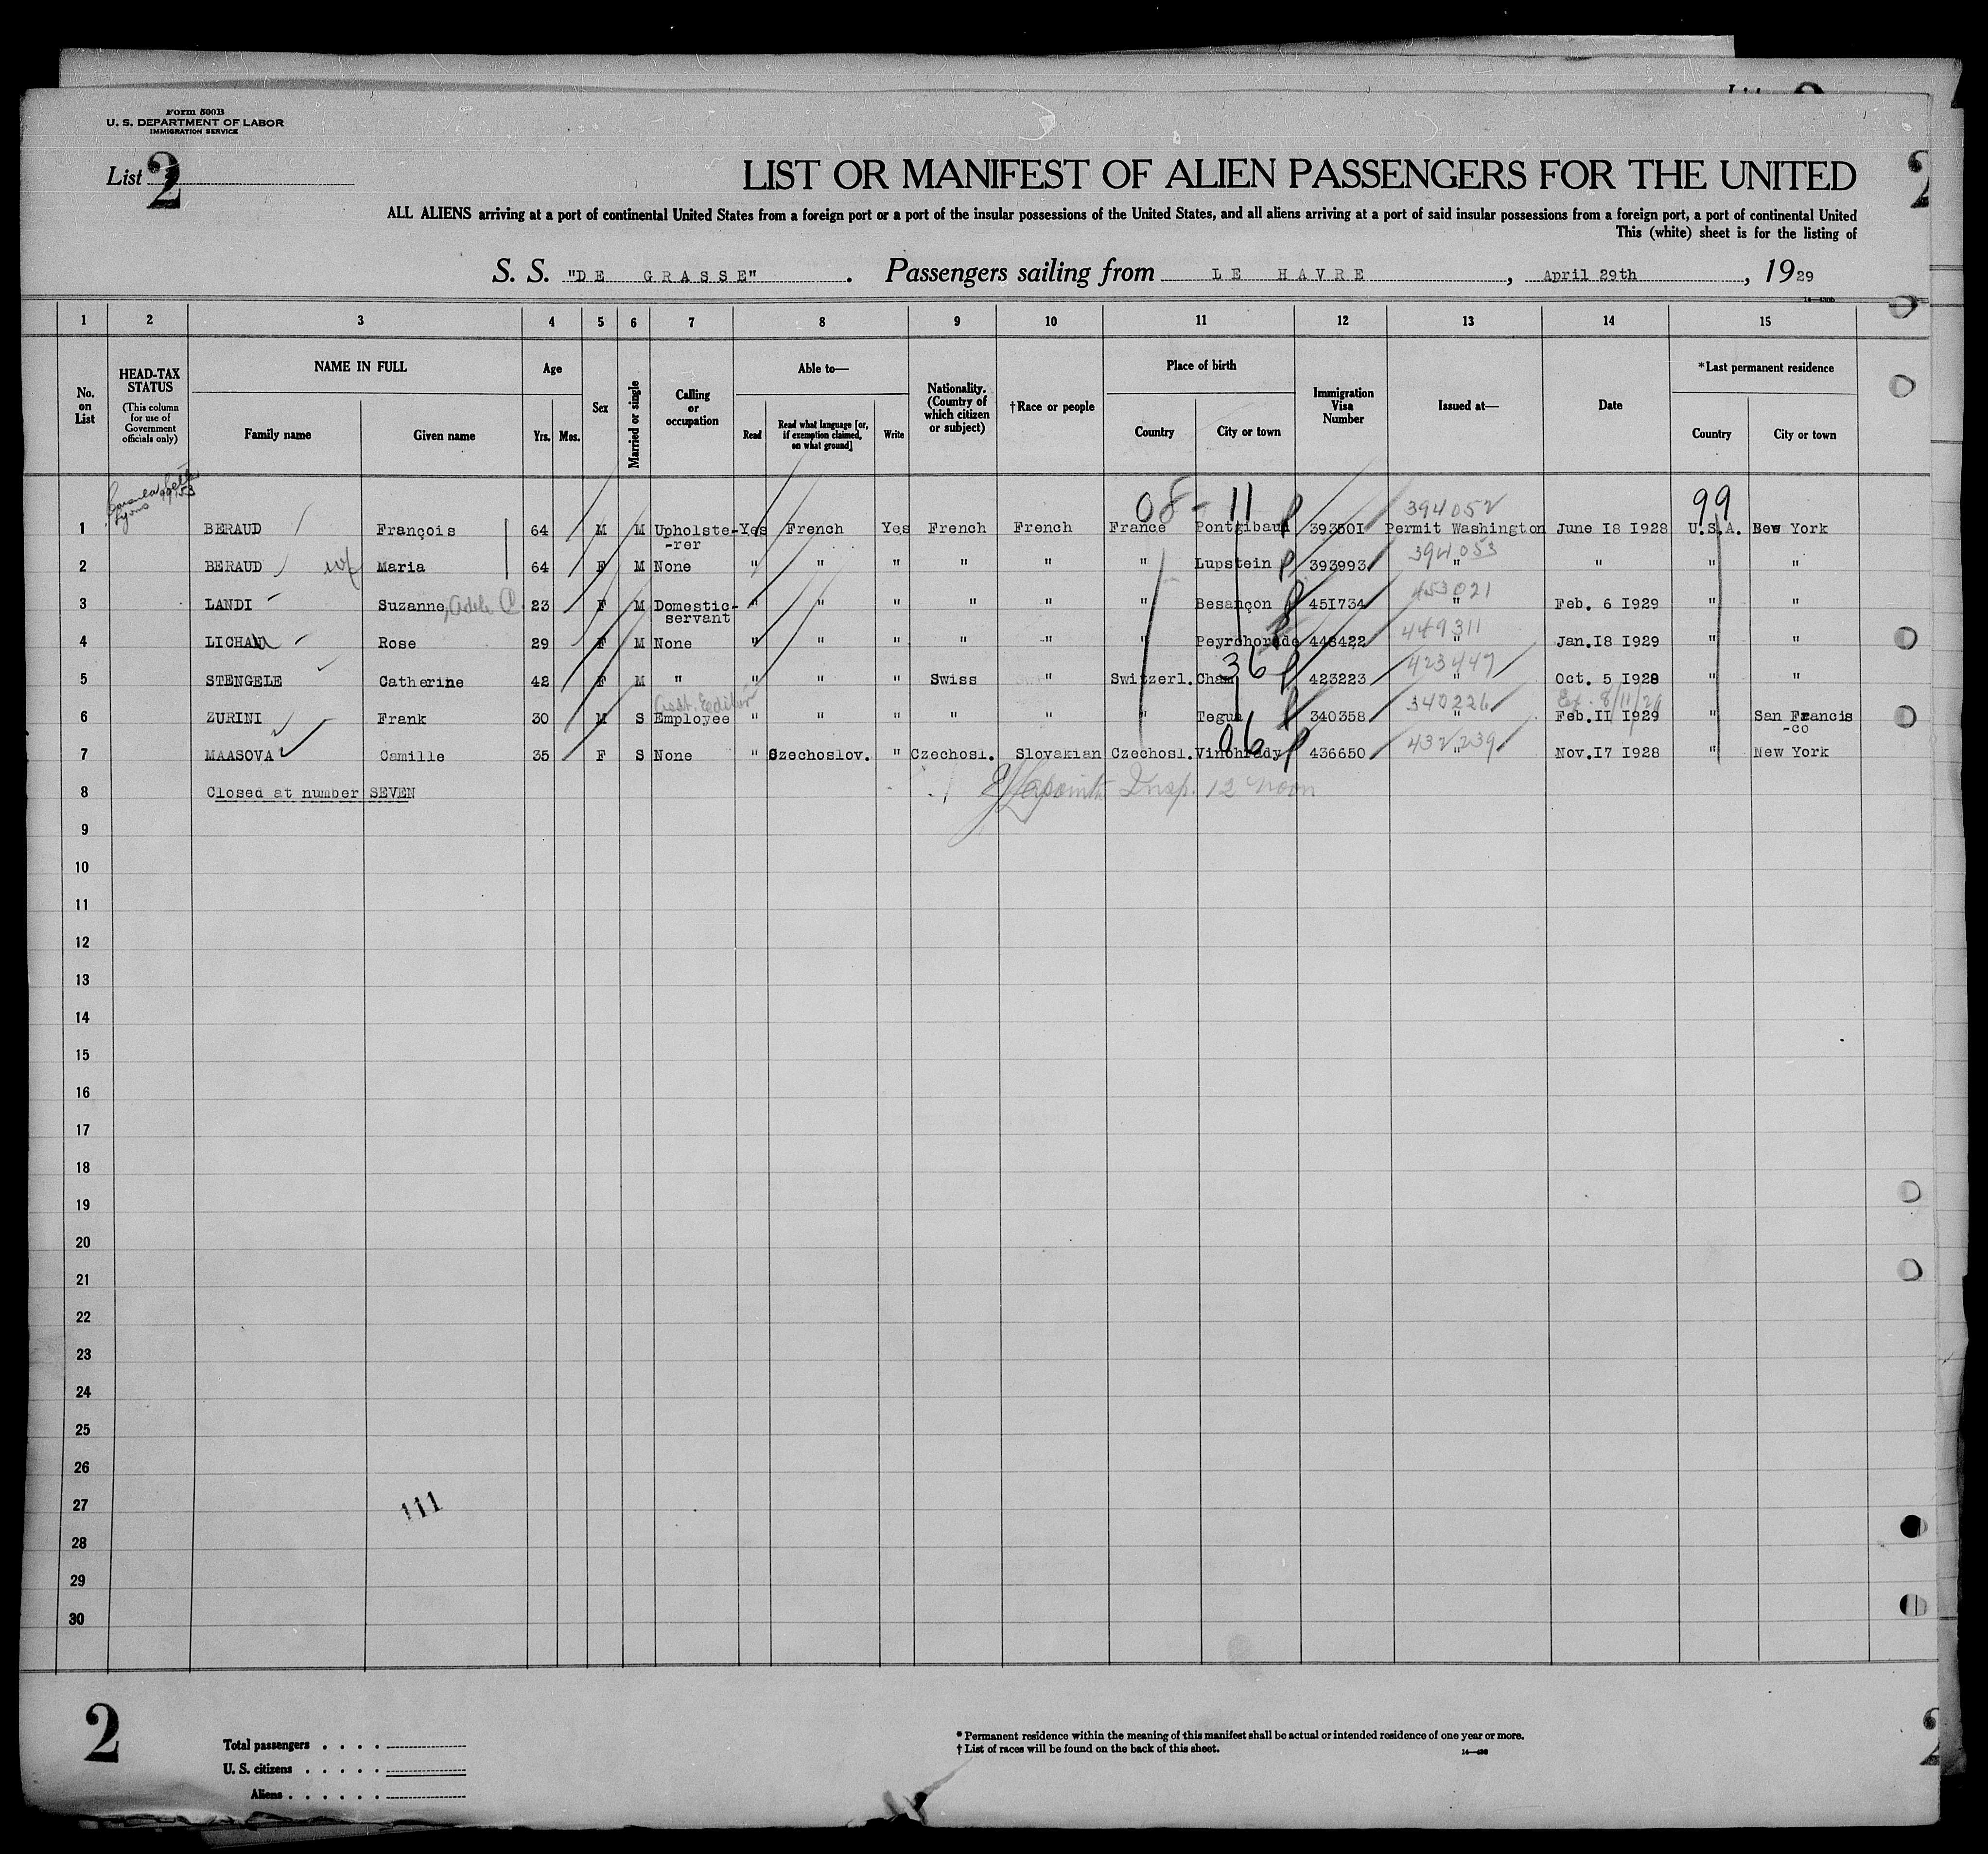 Form 500B
U. S. DEPARTMENT OF LABOR
IMMIGRATION SERVICE
List 2
LIST OR MANIFEST OF ALIEN PASSENGERS FOR THE UNITED
ALL ALIENS arriving at a port of continental United States from a foreign port or a port of the insular possessions of the United States, and all aliens arriving at a port of said insular possessions from a foreign port, a port of continental United
This (white) sheet is for the listing of
S. S. "DE GRASSE". Passengers sailing from LE HAVRE, April 29th, 1929
1 2 3 4 5 6 7 8 9 10 11 12 13 14 15
No. on List
HEAD-TAX STATUS
(This column for use of Government officials only)
NAME IN FULL
Family name Given name
Age
Yrs. Mos.
Sex
Married or single
Calling or occupation
Able to—
Read
Read what language [or, if exemption claimed, on what ground]
Write
Nationality. (Country of which citizen or subject)
†Race or people
Place of birth
Country City or town
Immigration Visa Number
Issued at—
Date
*Last permanent residence
Country City or town
Lyons
08 - 11 394052 99
1 BERAUD François 64 M M Upholste- Yes French Yes French French France Pontgibaud 393501 Permit Washington June I8 I928 U.S.A. New York
-rer
394053
2 BERAUD wf Maria 64 F M None " " " " " " Lupstein 393993 " " " "
453021
3 LANDI Suzanne, Adele C. 23 F M Domestic- " " " " " " Besançon 451734 " Feb. 6 I929 " "
servant
449311
4 LICHAU Rose 29 F M None " " " " " " Peyrehorade 448422 " Jan.I8 I929 " "
36 423447
5 STENGELE Catherine 42 F M " " " " Swiss " Switzerl. Cham 423223 " Oct. 5 I928 " "
Asst. Editor 340226 Ex. 8/11/29
6 ZURINI Frank 30 M S Employee " " " " " " Tegua 340358 " Feb.II I929 " San Francis
-co
06 432239
7 MAASOVA Camille 35 F S None " Szechoslov. " Czechosl. Slovakian Czechosl. Vinohrady 436650 " Nov.I7 I928 " New York
8 Closed at number SEVEN
Insp. 12 noon
9
10
11
12
13
14
15
16
17
18
19
20
21
22
23
24
25
26
27
111
28
29
30
2
Total passengers . . . .
U. S. citizens . . . . .
Aliens . . . . . .
* Permanent residence within the meaning of this manifest shall be actual or intended residence of one year or more.
† List of races will be found on the back of this sheet.
14—430